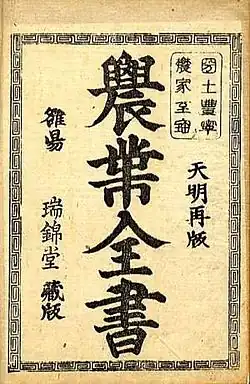 土豐寧
農家至
天明再版
農業全書
雒昜 瑞錦堂 藏版